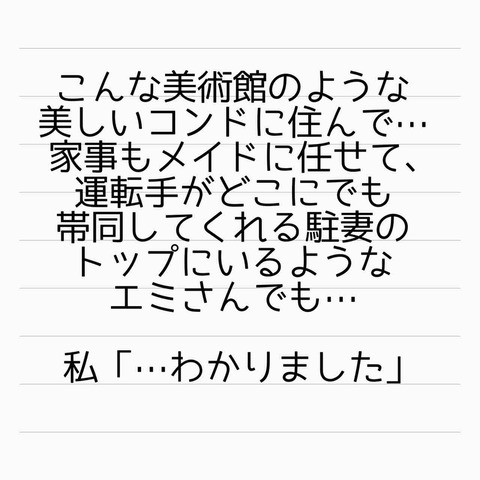 こんな美術館のような
美しいコンドに住んで…
家事もメイドに任せて、
運転手がどこにでも
帯同してくれる駐妻の
トップにいるような
エミさんでも…
私「…わかりました」